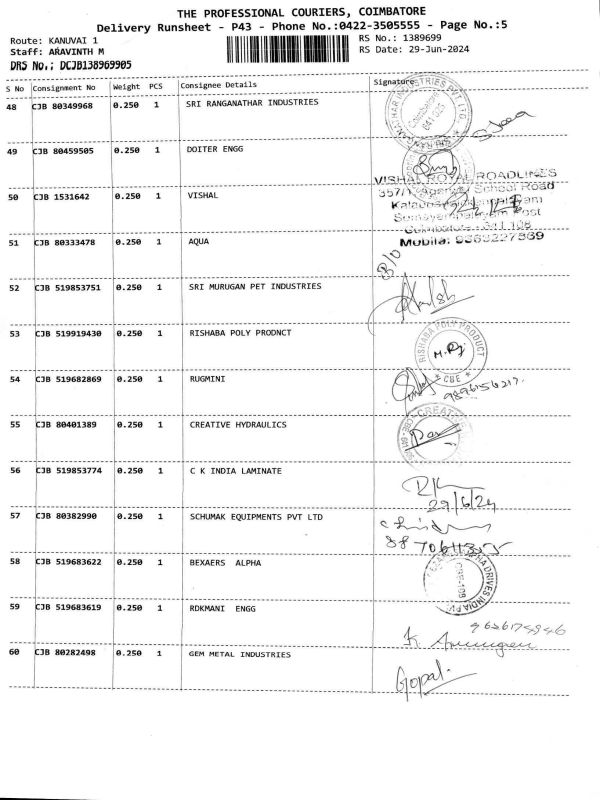 THE PROFESSIONAL COURIERS, COIMBATORE
Delivery Runsheet - P43 - Phone No.:0422-3505555 - Page No.:5
Route: KANUVAI 1
RS No.: 1389699
Staff: ARAVINTH M
RS Date: 29-Jun-2024
DRS No.: DCJB138969905
S No Consignment No Weight PCS Consignee Details Signature
48 CJB 80349968 0.250 1 SRI RANGANATHAR INDUSTRIES
49 CJB 80459505 0.250 1 DOITER ENGG
VISHAL ROYAL ROADLINES
School Road
50 CJB 1531642 0.250 1 VISHAL
Post
51 CJB 80333478 0.250 1 AQUA
Mobila: 9363227569
52 CJB 519853751 0.250 1 SRI MURUGAN PET INDUSTRIES
53 CJB 519919430 0.250 1 RISHABA POLY PRODNCT
RISHABA POLY PRODUCT
* CBE *
54 CJB 519682869 0.250 1 RUGMINI
55 CJB 80401389 0.250 1 CREATIVE HYDRAULICS
56 CJB 519853774 0.250 1 C K INDIA LAMINATE
29/6/24
57 CJB 80382990 0.250 1 SCHUMAK EQUIPMENTS PVT LTD
58 CJB 519683622 0.250 1 BEXAERS ALPHA
59 CJB 519683619 0.250 1 RDKMANI ENGG
60 CJB 80282498 0.250 1 GEM METAL INDUSTRIES
Gopal